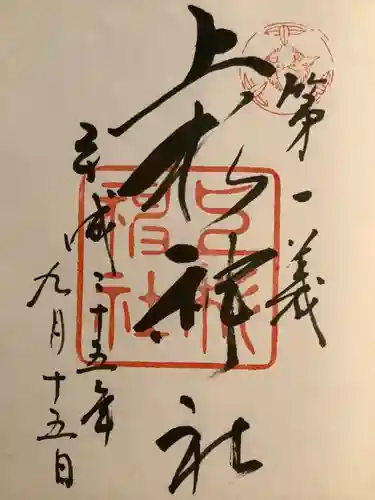 第一義
上杉神社
平成二十五年
九月十五日